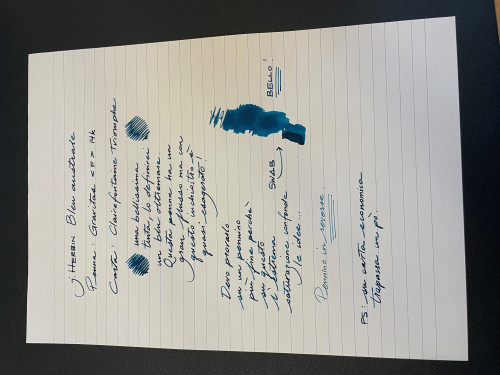 J. HERBIN Bleu australe
Penna: Gravitas <F> 14k
Carta: Clairefontaine Triomphe
una bellissima
tinta: lo definirei
un blu oltremare.
Questa penna ha un
gran flusso ma con
questo inchiostro è
quasi esagerato!
Devo provarlo
su un pennino
più fine perché
su questo
l'estrema
saturazione confonde
le idee...
SWAB
BELLO!
Pennino in reverse.
PS: su carta economica
trapassa un pò.